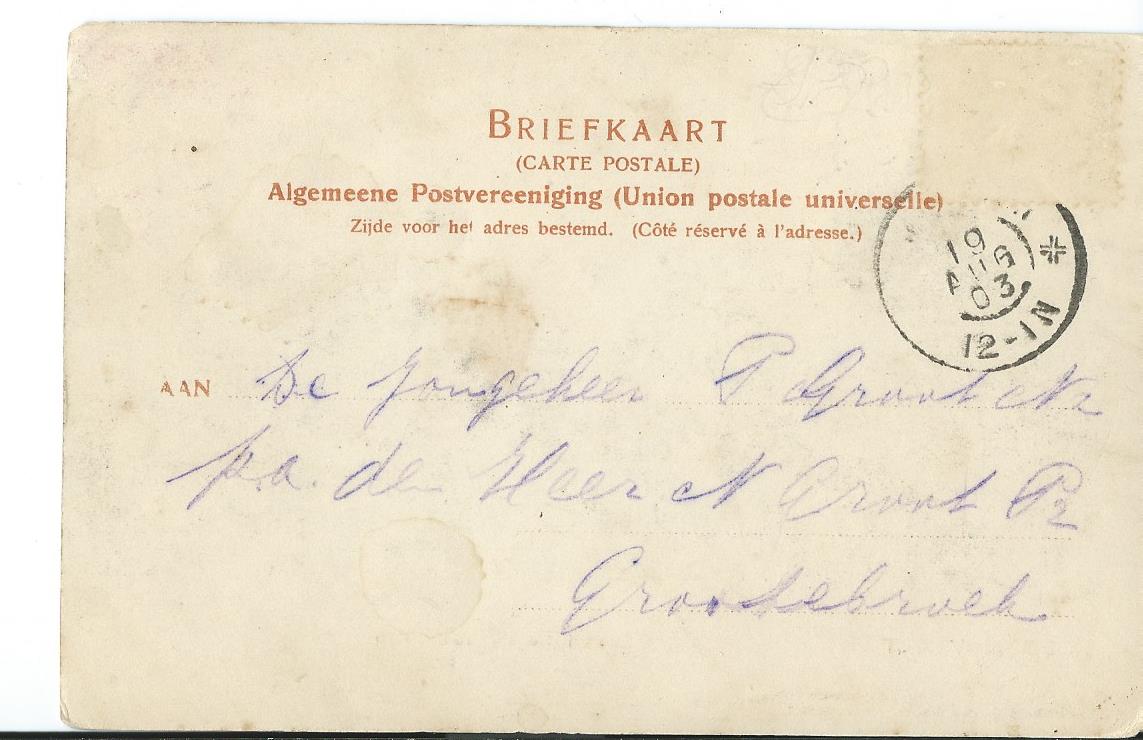 BRIEFKAART
(CARTE POSTALE)
Algemeene Postvereeniging (Union postale universelle)
Zijde voor het adres bestemd. (Côté réservé à l'adresse.)
19
AUG
03
12-1N
AAN De Jongeheer P Groot Nz
p.a. den Heer N Groot Pz
Grootebroek